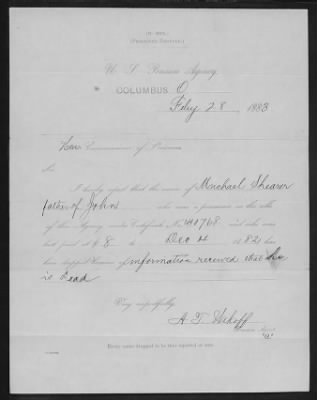 (Pensioner Dropped.)
U. S. Pension Agency,
COLUMBUS, O
Feby 28 1883
Hon. Commissioner of Pensions
Sir:
I hereby report that the name of Michael Shearer
father of John who was a pensioner on the rolls
of this Agency under Certificate No. 40768 and who was
last paid at $8, to Dec 4, 1882, has
been dropped because of information received that he
is dead
Very respectfully,
A. T. Wikoff
Pension Agent.
Every name dropped to be thus reported at once.